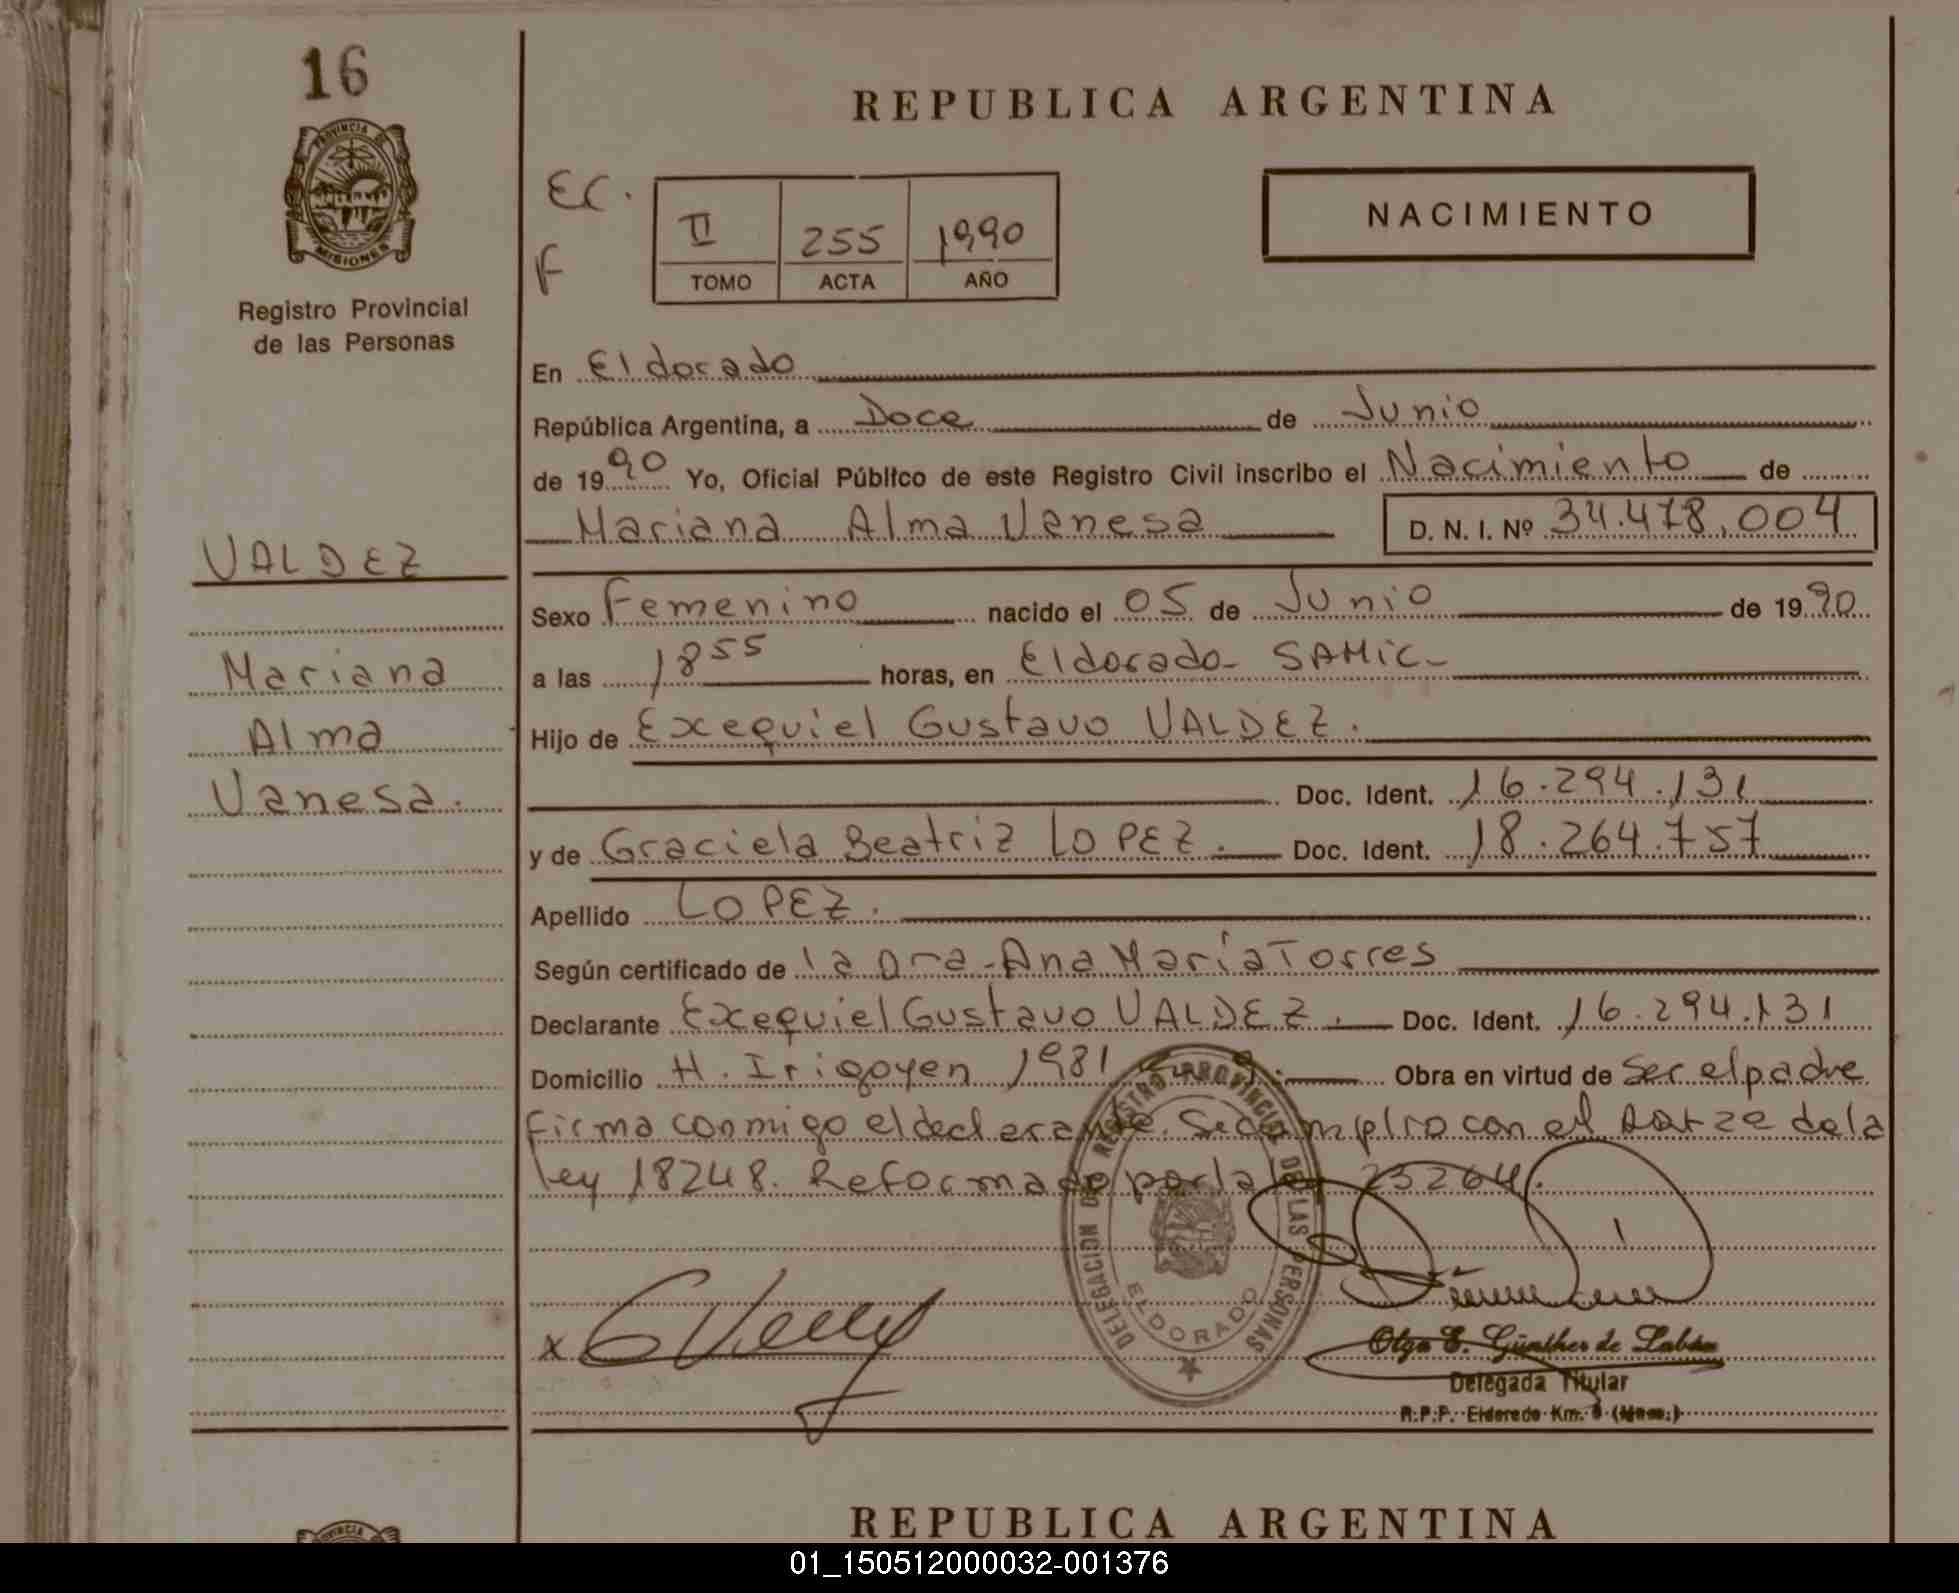 16
PROVINCIA DE
MISIONES
Registro Provincial
de las Personas
VALDEZ
Mariana
Alma
Vanesa.
REPUBLICA ARGENTINA
EC.
F
II 255 1990
TOMO ACTA AÑO
NACIMIENTO
En Eldorado
República Argentina, a Doce de Junio
de 1990 Yo, Oficial Público de este Registro Civil inscribo el Nacimiento de
Mariana Alma Vanesa D. N. I. Nº 34.478.004
Sexo Femenino nacido el 05 de Junio de 1990
a las 1855 horas, en Eldorado- SAMIC-
Hijo de Exequiel Gustavo VALDEZ.
Doc. Ident. 16.294.131
y de Graciela Beatriz LOPEZ. Doc. Ident. 18.264.757
Apellido LOPEZ.
Según certificado de la Dra-Ana María Torres
Declarante Exequiel Gustavo VALDEZ. Doc. Ident. 16.294.131
Domicilio H. Irigoyen 1981 Obra en virtud de ser el padre
firma conmigo el declarante. Se cumplio con el de la
ley 18248. Reformado por la 23264.
DELEGACION DEL REGISTRO PROVINCIAL DE LAS PERSONAS
ELDORADO
x
Olga E. Günther de
Delegada Titular
R.P.P. Eldorado Km.
REPUBLICA ARGENTINA
01_150512000032-001376